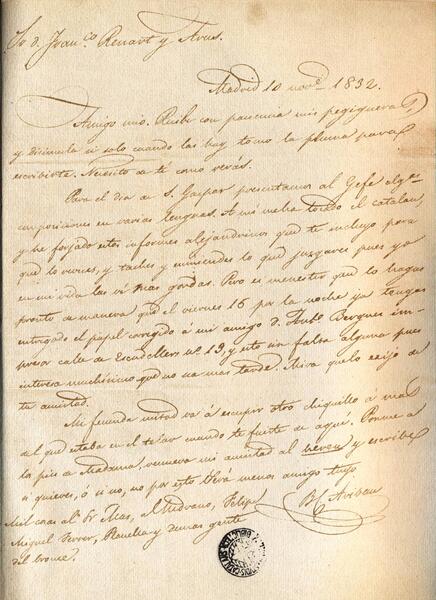 Sr. D. Franco. Renart y Arus.
Madrid 10 nove. 1832.
Amigo mio. Recibe con paciencia mis pejigueras,
y disimula si solo cuando las hay tomo la pluma para
escribirte. Necesito a ti como verás.
Para el dia de S. Gaspar presentamos al Gefe algs.
composiciones en varias lenguas. A mi me ha tocado el catalan,
y he forjado estos informes alejandrinos que te incluyo para
que lo revises, y taches y enmiendes lo que juzgares pues yo
en mi vida las vi mas gordas. Pero es menester que lo hagas
pronto de manera que el viernes 16 por la noche ya tengas
entregado el papel corregido á mi amigo D. Anto. Bergnes im-
presor calle de Escudellers nº 13, y esto sin falta alguna pues
interesa muchisimo que no sea mas tarde. Asi va que lo exijo de
tu amistad.
Mi fecunda mitad va á escupir otro chiquillo á mas
del que estaba en el telar cuando te fuiste de aqui. Ponme a
los pies de Madama renueva mi amistad al hereu y escribe
si quieres, ó si no, no por esto será menos amigo tuyo
B. Aribau
Mil cosas al Sr. Mas, Medrano, Felipe,
Miguel Ferrer, Rauella y demas gente
del bronce.